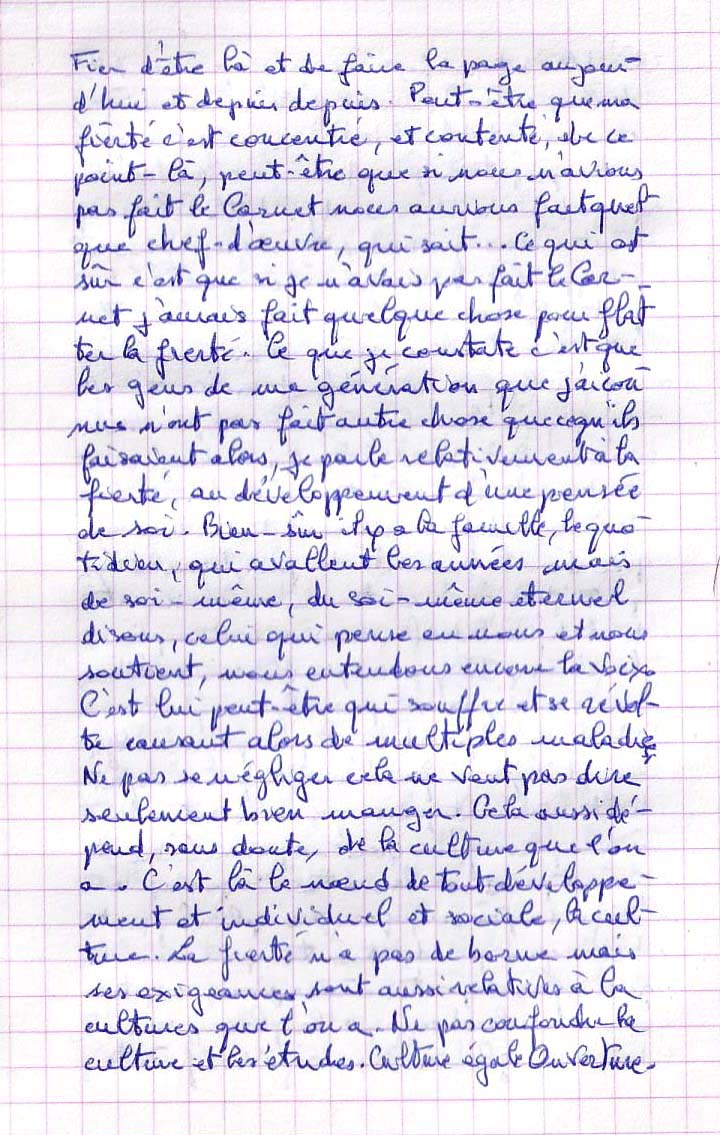 Fier d'être là et de faire la page aujour-
d'hui et depuis depuis. Peut-être que ma
fierté c'est concentré, et contenté, de ce
point-là, peut-être que si nous n'avions
pas fait le Carnet nous aurions fait quel
que chef-d'œuvre, qui sait... Ce qui est
sûr c'est que si je n'avais pas fait le Car-
net j'aurais fait quelque chose pour flat
ter la fierté. Ce que je constate c'est que
les gens de ma génération que j'ai con
nus n'ont pas fait autre chose que ce qu'ils
faisaient alors, je parle relativement à la
fierté, au développement d'une pensée
de soi. Bien-sûr il y a la famille, le quo-
tidien, qui avallent les années mais
de soi-même, du soi-même éternel
disons, celui qui pense en nous et nous
soutient, nous entendons encore la voix.
C'est lui peut-être qui souffre et se révol-
te causant alors de multiples maladies
Ne pas se négliger cela ne veut pas dire
seulement bien manger. Cela aussi dé-
pend, sans doute, de la culture que l'on
a. C'est là le nœud de tout développe-
ment et individuel et sociale, la cul-
ture. La fierté n'a pas de borne mais
ses exigeances sont aussi relatives à la
cultures que l'on a. Ne pas confondre la
culture et les études. Culture égale Ouverture.